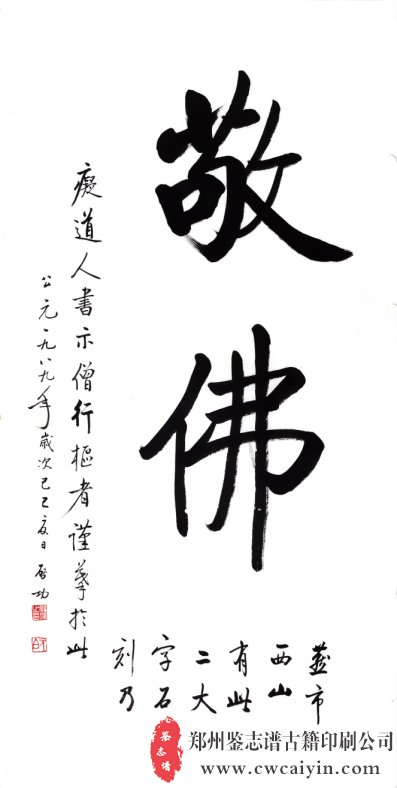 敬佛
燕市
西山
有此
二大
字石
刻乃
癡道人書示僧行樞者謹摹於此
公元一九八九年歲次己巳夏日 启功
鉴志谱
郑州鉴志谱古籍印刷公司
www.cwcaiyin.com